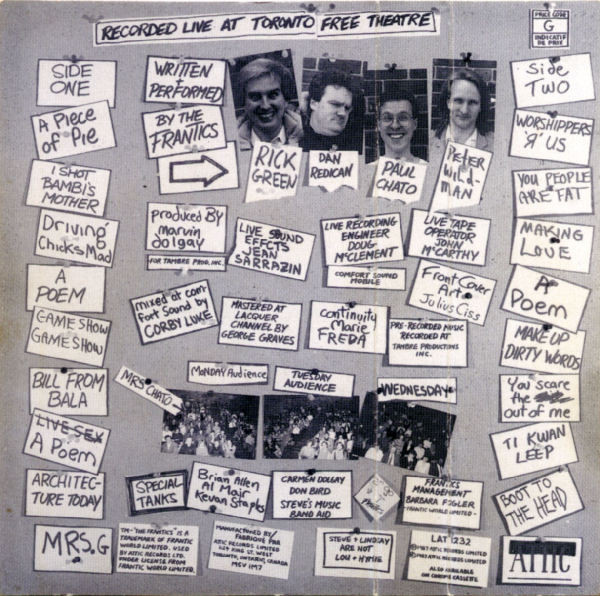 RECORDED LIVE AT TORONTO FREE THEATRE
PRICE CODE
G
INDICATIF
DE PRIX
SIDE
ONE
A Piece
of Pie
I SHOT
BAMBI'S
MOTHER
Driving
Chicks Mad
A
POEM
GAME SHOW
GAME SHOW
BILL FROM
BALA
LIVE SEX
A Poem
ARCHITEC-
TURE TODAY
MRS. G
WRITTEN
+
PERFORMED
BY THE
FRANTICS
RICK
GREEN
DAN
REDICAN
PAUL
CHATO
PETER
WILD-
MAN
produced By
marvin
dolgay
FOR TAMBRE PROD. INC.
LIVE SOUND
EFFCTS
JEAN
SARRAZIN
LIVE RECORDING
ENGINEER
DOUG
McCLEMENT
COMFORT SOUND
MOBILE
LIVE TAPE
OPERATOR
JOHN
McCARTHY
mixed at com-
fort Sound by
CORBY LUKE
MASTERED AT
LACQUER
CHANNEL BY
GEORGE GRAVES
continuity
Marie
FREDA
Front Cover
Art
Julius Ciss
PRE-RECORDED MUSIC
RECORDED AT
TAMBRE PRODUCTIONS
INC.
MRS CHATO
MONDAY AUDIENCE
TUESDAY
AUDIENCE
WEDNESDAY
SPECIAL
TANKS
Brian Allen
Al Mair
Kevan Staples
CARMEN DOLGAY
DON BIRD
STEVE'S MUSIC
BAND AID
Frantics
FRANTICS
MANAGEMENT
BARBARA FOGLER
-FRANTIC WORLD LIMITED-
TM-"THE FRANTICS" IS A
TRADEMARK OF FRANTIC
WORLD LIMITED. USED
BY ATTIC RECORDS LTD.
UNDER LICENSE FROM
FRANTIC WORLD LIMITED.
MANUFACTURED BY/
FABRIQUE PAR
ATTIC RECORDS LIMITED
624 KING ST. WEST
TORONTO, ONTARIO, CANADA
M5V 1M7
STEVE + LINDSAY
ARE NOT
LOU + HYMIE
LAT 1232
1987 ATTIC RECORDS LIMITED
1987 ATTIC RECORDS LIMITED
ALSO AVAILABLE
ON CHROME CASSETTE
Side
TWO
WORSHIPPERS
'Я' US
YOU PEOPLE
ARE FAT
MAKING
LOVE
A
Poem
MAKE UP
DIRTY WORDS
You scare
the
out of me
TI KWAN
LEEP
BOOT TO
THE HEAD
ATTIC